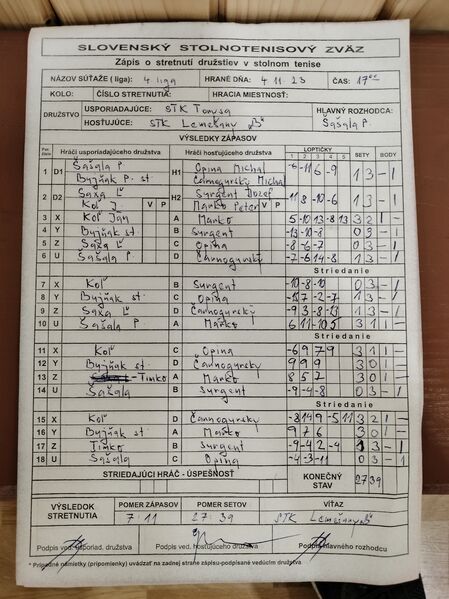 SLOVENSKÝ STOLNOTENISOVÝ ZVÄZ
Zápis o stretnutí družstiev v stolnom tenise
NÁZOV SÚŤAŽE ( liga): 4 liga HRANÉ DŇA: 4 11. 23 ČAS: 17:00
KOLO: ČÍSLO STRETNUTIA: HRACIA MIESTNOSŤ:
DRUŽSTVO USPORIADAJÚCE: STK Tomysa HLAVNÝ ROZHODCA:
HOSŤUJÚCE: STK Lemešany "B" Šašala P.
VÝSLEDKY ZÁPASOV
Hráči usporiadajúceho družstva Hráči hosťujúceho družstva LOPTIČKY SETY BODY
1 2 3 4 5
1 D1 Šašala P H1 Opina Michal -6 -11 6 -9 1 3 - 1
Byjňak P. st. Čarnogurský Michal
2 D2 Saxa Ľ H2 Surgent Jozef -11 8 -10 -6 1 3 - 1
Koľ J V P Marko Peter V P
3 X Koľ Jan A Marko 5 -10 13 -8 13 3 2 1 -
4 Y Byjňak st. B Surgent -13 -10 -8 0 3 - 1
5 Z Saxa Ľ C Opina -8 -6 -7 0 3 - 1
6 U Šašala P D Čarnogurský -7 -6 14 -8 1 3 - 1
Striedanie
7 X Koľ B Surgent -10 -8 -10 0 3 - 1
8 Y Byjňak st. C Opina 1 3 - 1
9 Z Saxa Ľ D Čarnogurský -9 -3 8 -13 1 3 - 1
10 U Šašala P A Marko 6 11 -10 5 3 1 1 -
Striedanie
11 X Koľ C Opina -6 9 7 9 3 1 1 -
12 Y Byjňak st. D Čarnogurský 9 9 9 3 0 1 -
13 Z Timko A Marko 8 5 2 3 0 1 -
14 U Šašala B Surgent -9 -4 -8 0 3 - 1
Striedanie
15 X Koľ D Čarnogurský -8 14 9 -5 11 3 2 1 -
16 Y Byjňak st. A Marko 9 7 6 3 0 1 -
17 Z Timko B Surgent -9 -4 2 -4 1 3 - 1
18 U Šašala C Opina -4 -3 -11 0 3 - 1
STRIEDAJÚCI HRÁČ - ÚSPEŠNOSŤ KONEČNÝ STAV 27 39
VÝSLEDOK STRETNUTIA POMER ZÁPASOV POMER SETOV VÍŤAZ
7 : 11 27 : 39 STK Lemešany "B"
Podpis ved. usporiad. družstva Podpis ved. hosťujúceho družstva Podpis hlavného rozhodcu
* Prípadné námietky (pripomienky) uvádzať na zadnej strane zápisu-podpísané vedúcim družstva